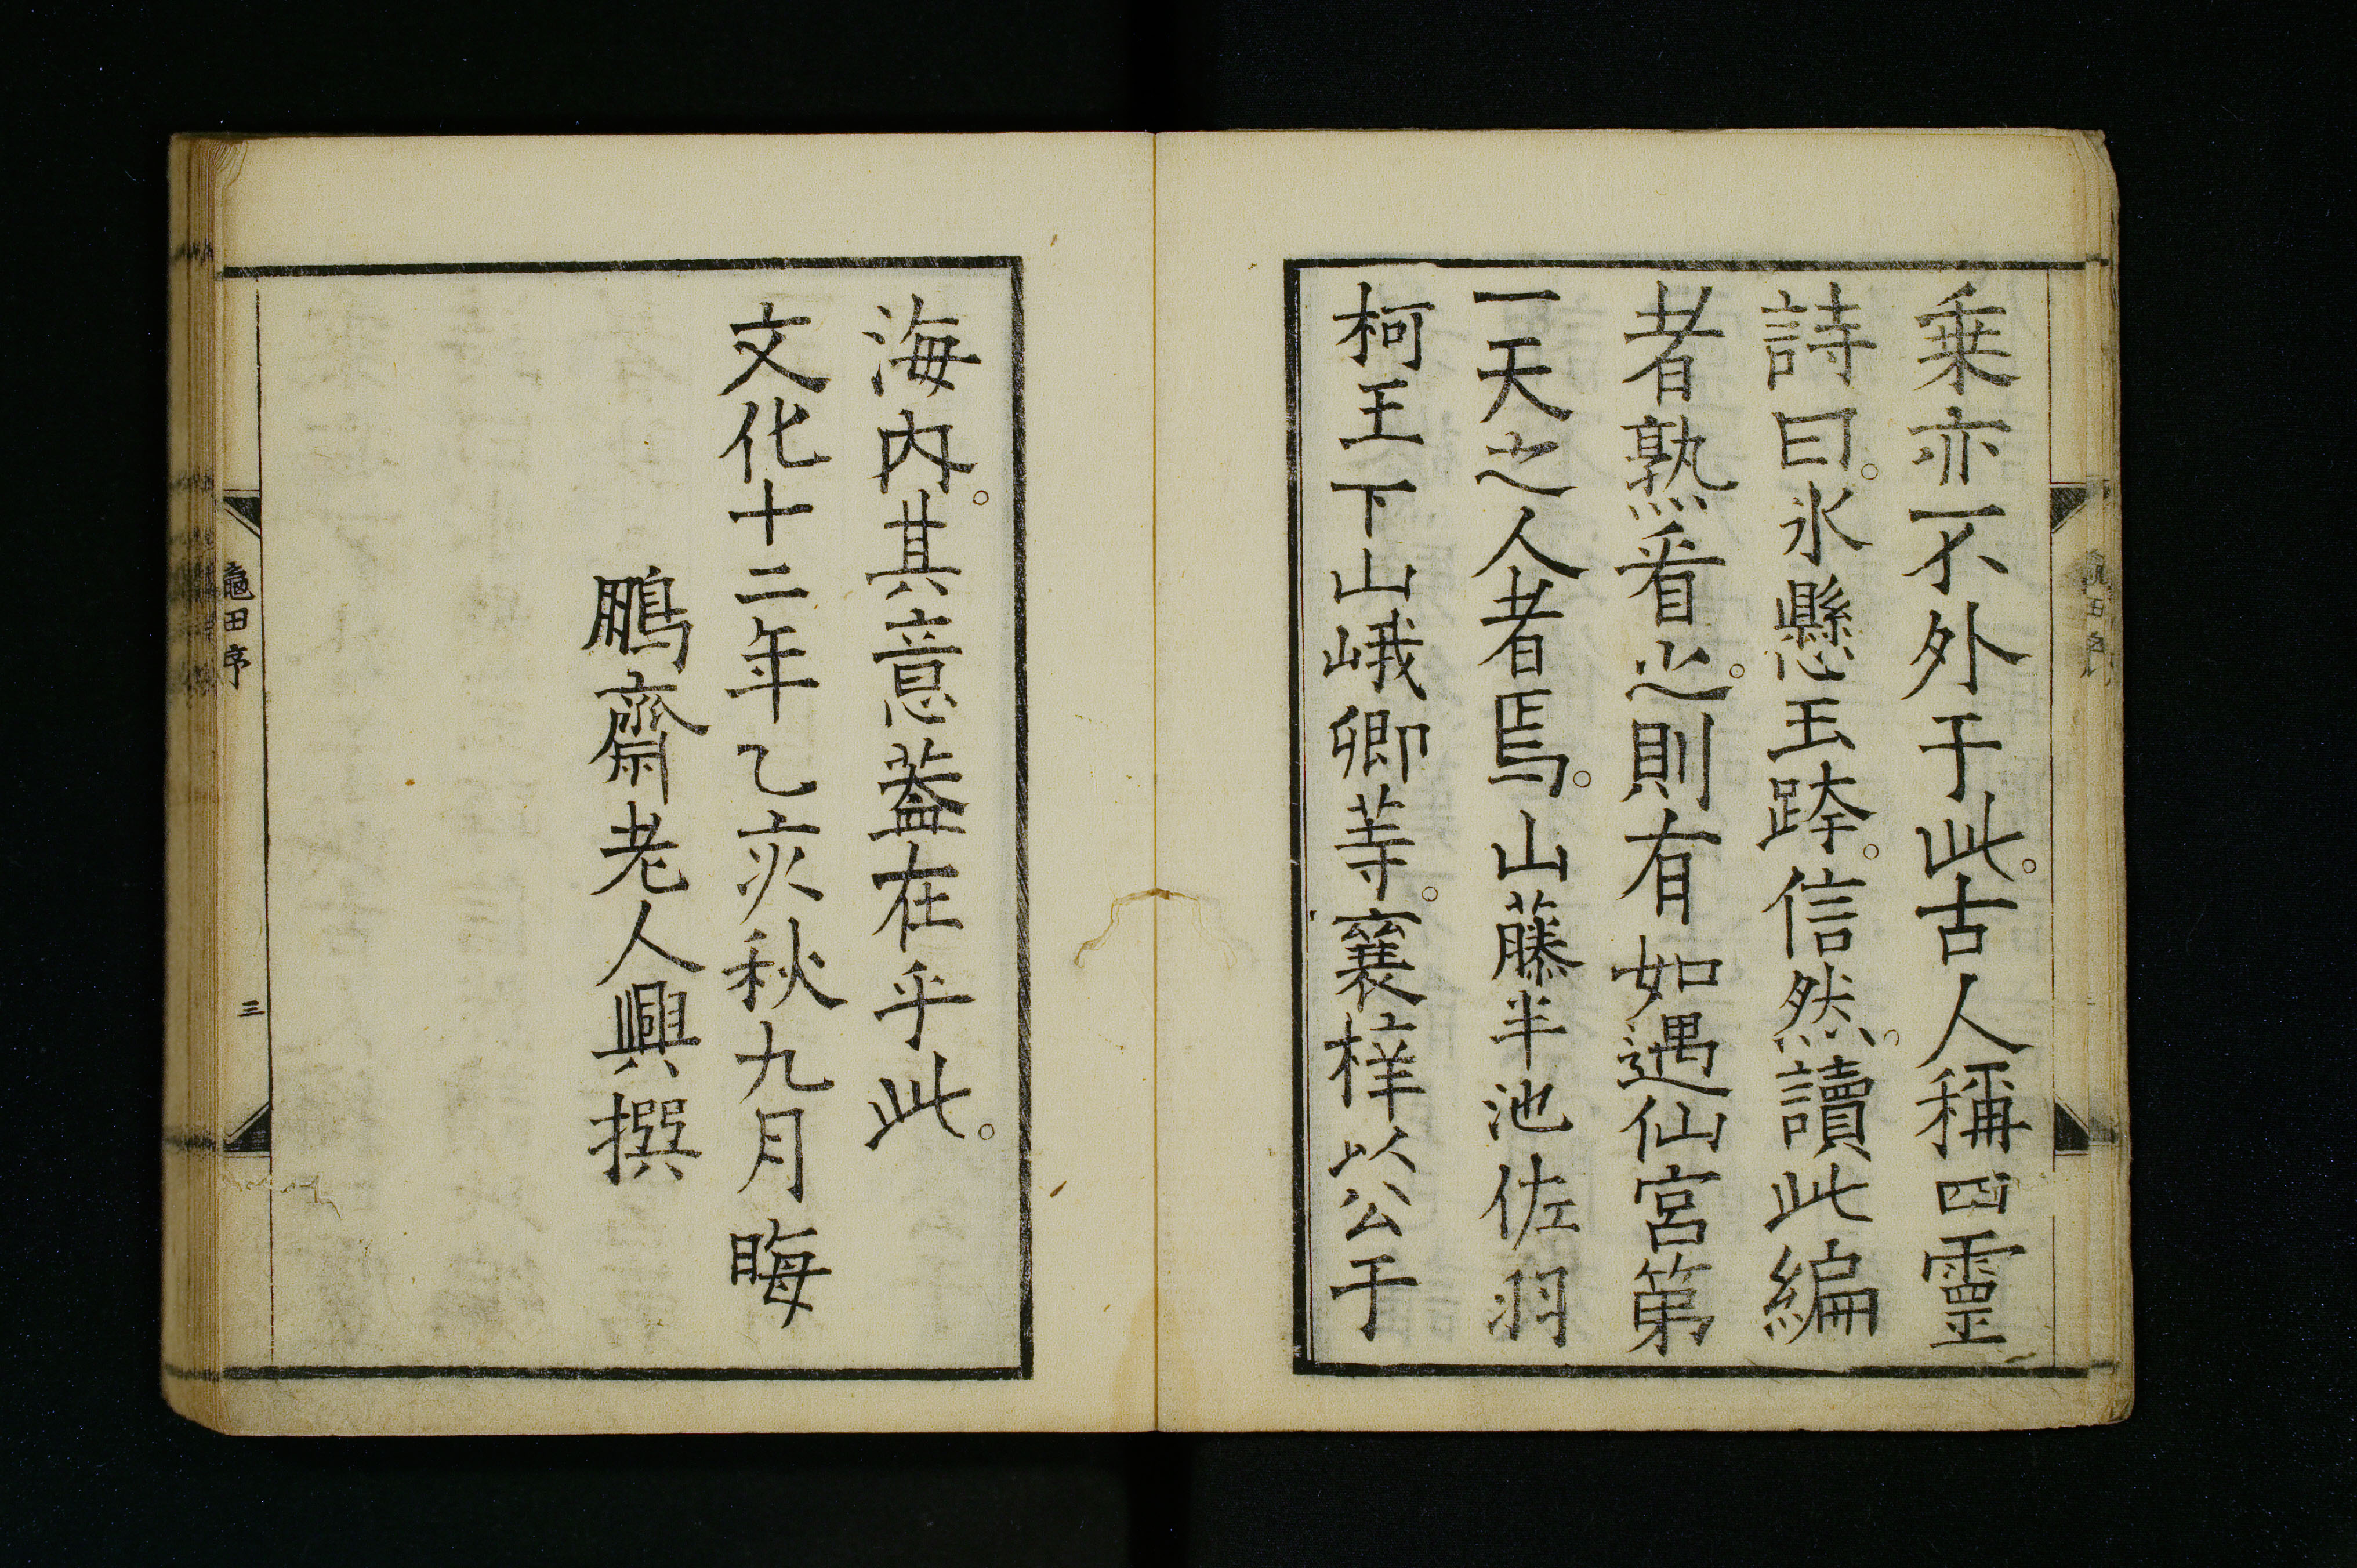 乗亦不外于此。古人稱四靈
詩曰。氷懸玉跨。信然。讀此編
者熟看之。則有如遇仙宮第
一天之人者焉。山藤半池佐羽
柯王下山峨卿等。襄梓以公于
海内。其意葢在乎此。
文化十二年乙亥秋九月晦
鵬齋老人興撰
龜田序
三